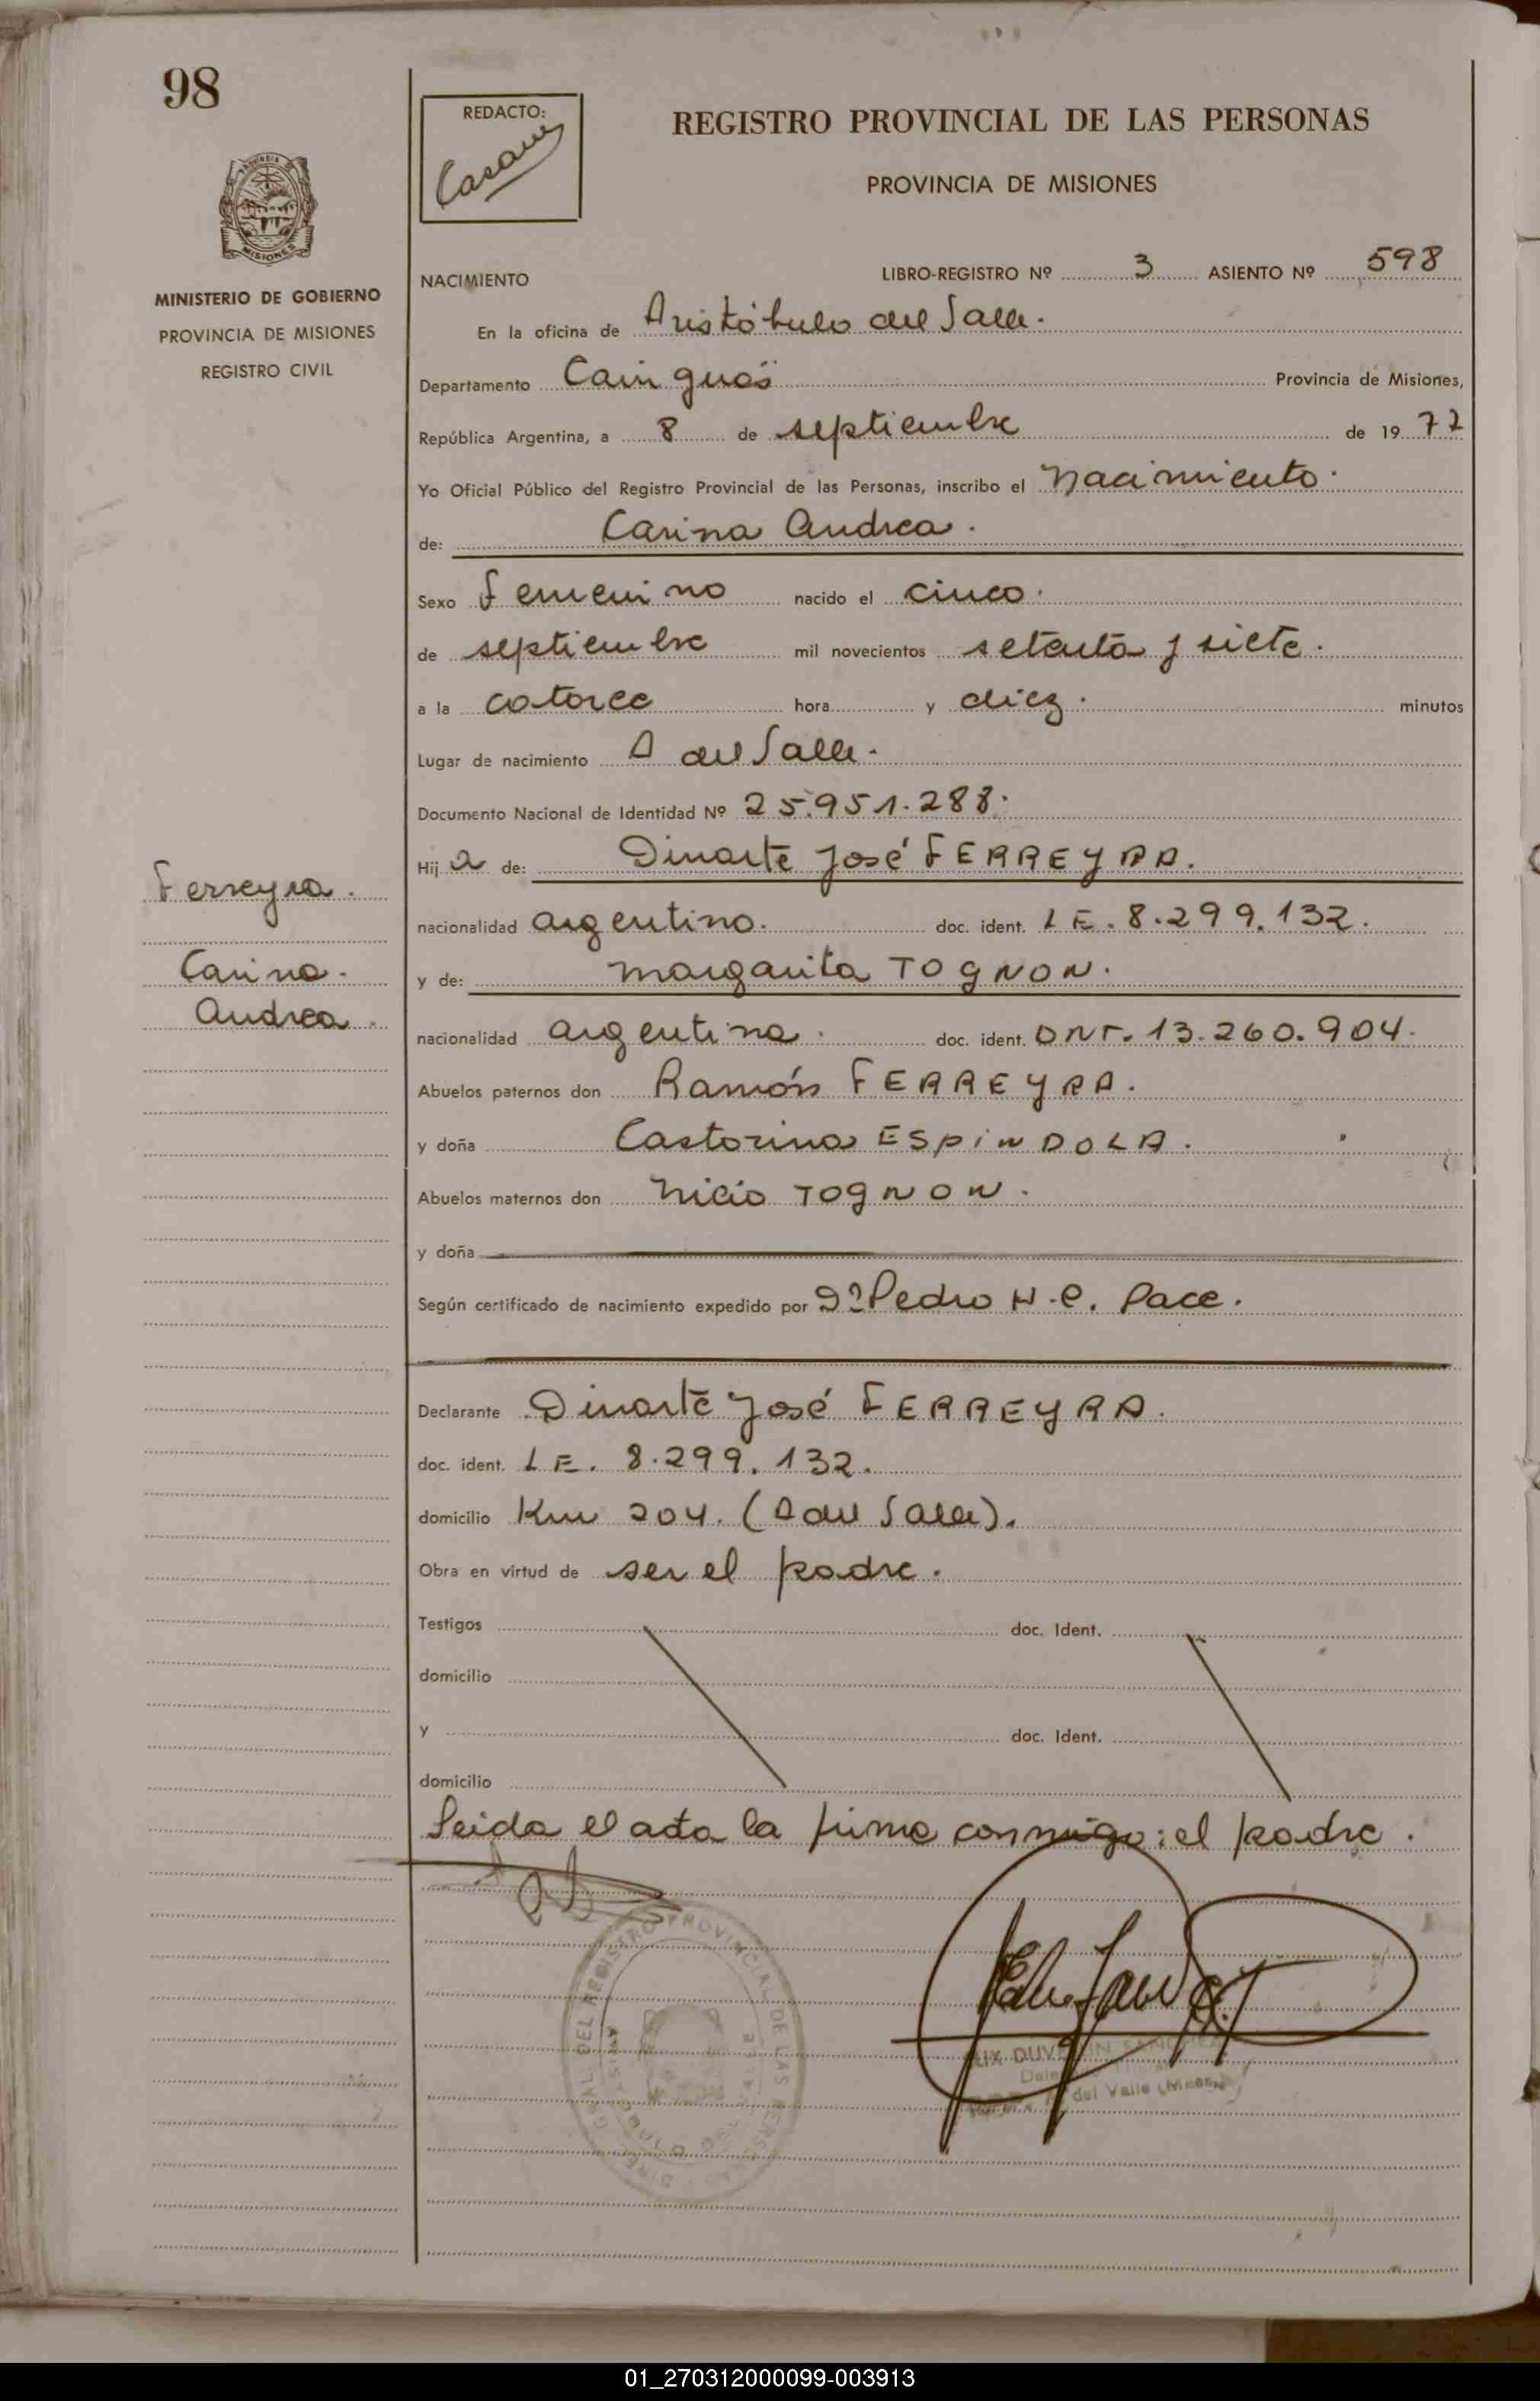 98
REDACTO:
REGISTRO PROVINCIAL DE LAS PERSONAS
PROVINCIA DE MISIONES
MISIONES
MINISTERIO DE GOBIERNO
PROVINCIA DE MISIONES
REGISTRO CIVIL
NACIMIENTO LIBRO-REGISTRO Nº 3 ASIENTO Nº 598
En la oficina de Aristóbulo del Valle.
Departamento Cainguás Provincia de Misiones,
República Argentina, a 8 de septiembre de 19 77
Yo Oficial Público del Registro Provincial de las Personas, inscribo el Nacimiento.
de: Carina Andrea.
Sexo Femenino nacido el cinco.
de septiembre mil novecientos setenta y siete.
a la catorce hora y diez. minutos
Lugar de nacimiento A del Valle.
Documento Nacional de Identidad Nº 25.951.288.
Hij a de: Dinarte José FERREYRA.
nacionalidad argentino. doc. ident. L E. 8.299.132.
y de: Margarita TOGNON.
nacionalidad argentina. doc. ident. DNI. 13.260.904.
Abuelos paternos don Ramón FERREYRA.
y doña Castorina ESPINDOLA.
Abuelos maternos don Nicio TOGNON.
y doña
Según certificado de nacimiento expedido por Dr Pedro H. C. Pace.
Ferreyra.
Carina.
Andrea.
Declarante Dinarte José FERREYRA.
doc. ident. L E. 8.299.132.
domicilio Km 204. (A del Valle).
Obra en virtud de ser el padre.
Testigos doc. Ident.
domicilio
y doc. Ident.
domicilio
Leida el acta la firma conmigo: el padre.
DIREC. GRAL. DEL REGISTRO PROVINCIAL DE LAS PERSONAS
del Valle
01_270312000099-003913